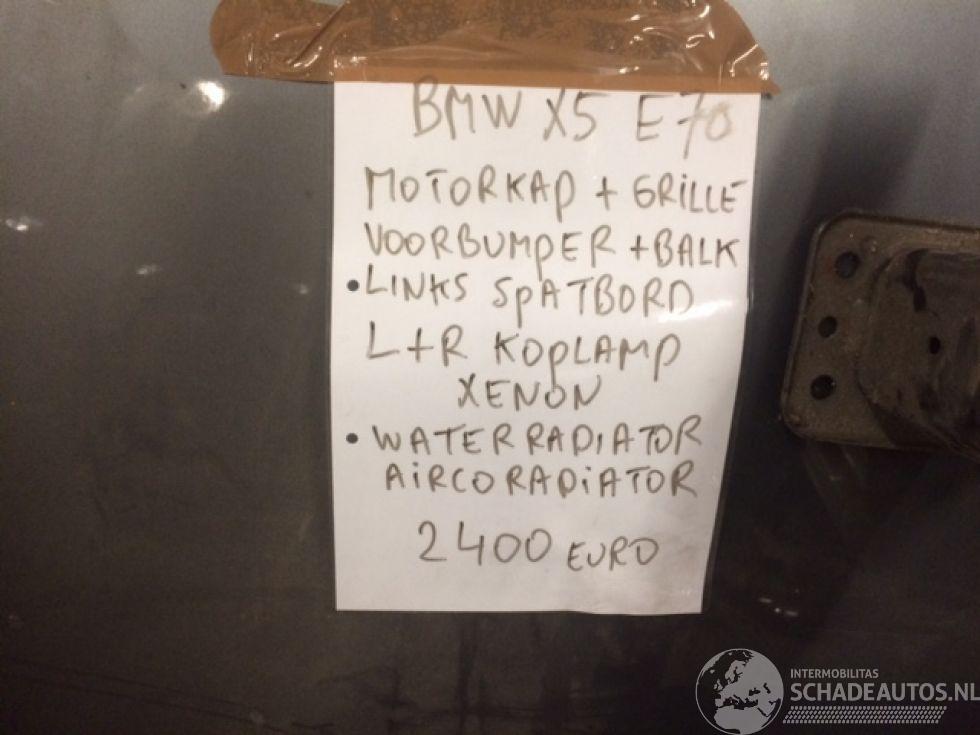 BMW X5 E70
MOTORKAP + GRILLE
VOORBUMPER + BALK
• LINKS SPATBORD
L+R KOPLAMP
XENON
• WATERRADIATOR
AIRCORADIATOR
2400 EURO
INTERMOBILITAS
SCHADEAUTOS.NL